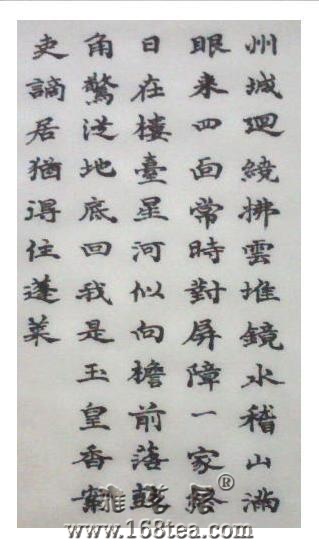 州城迴繞拂雲堆鏡水稽山滿
眼来四面常時對屏障一家
日在樓臺星河似向檐前落鼓
角驚從地底回我是玉皇香案
吏謫居猶得住蓬萊
®
www.168tea.com